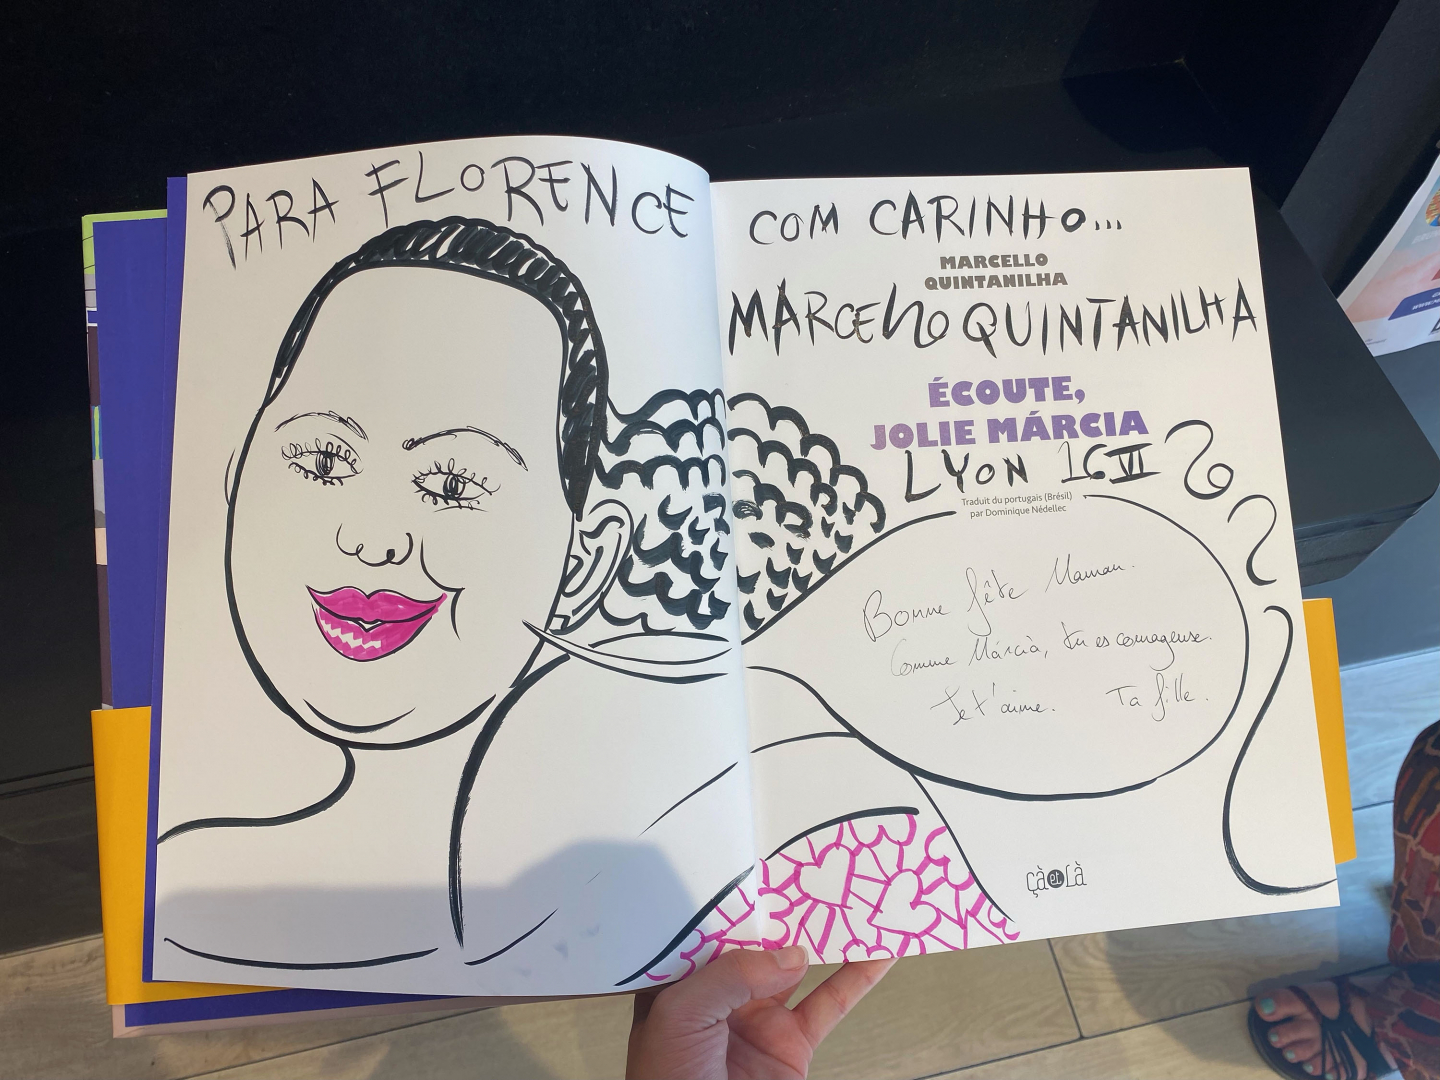 PARA FLORENCE
COM CARINHO...
MARCELLO
QUINTANILHA
MARCELLO QUINTANILHA
ÉCOUTE,
JOLIE MÁRCIA
LYON 16 VI
Traduit du portugais (Brésil)
par Dominique Nédellec
Bonne fête Maman.
Comme Márcia, tu es courageuse.
Je t'aime. Ta fille.
çà et Là